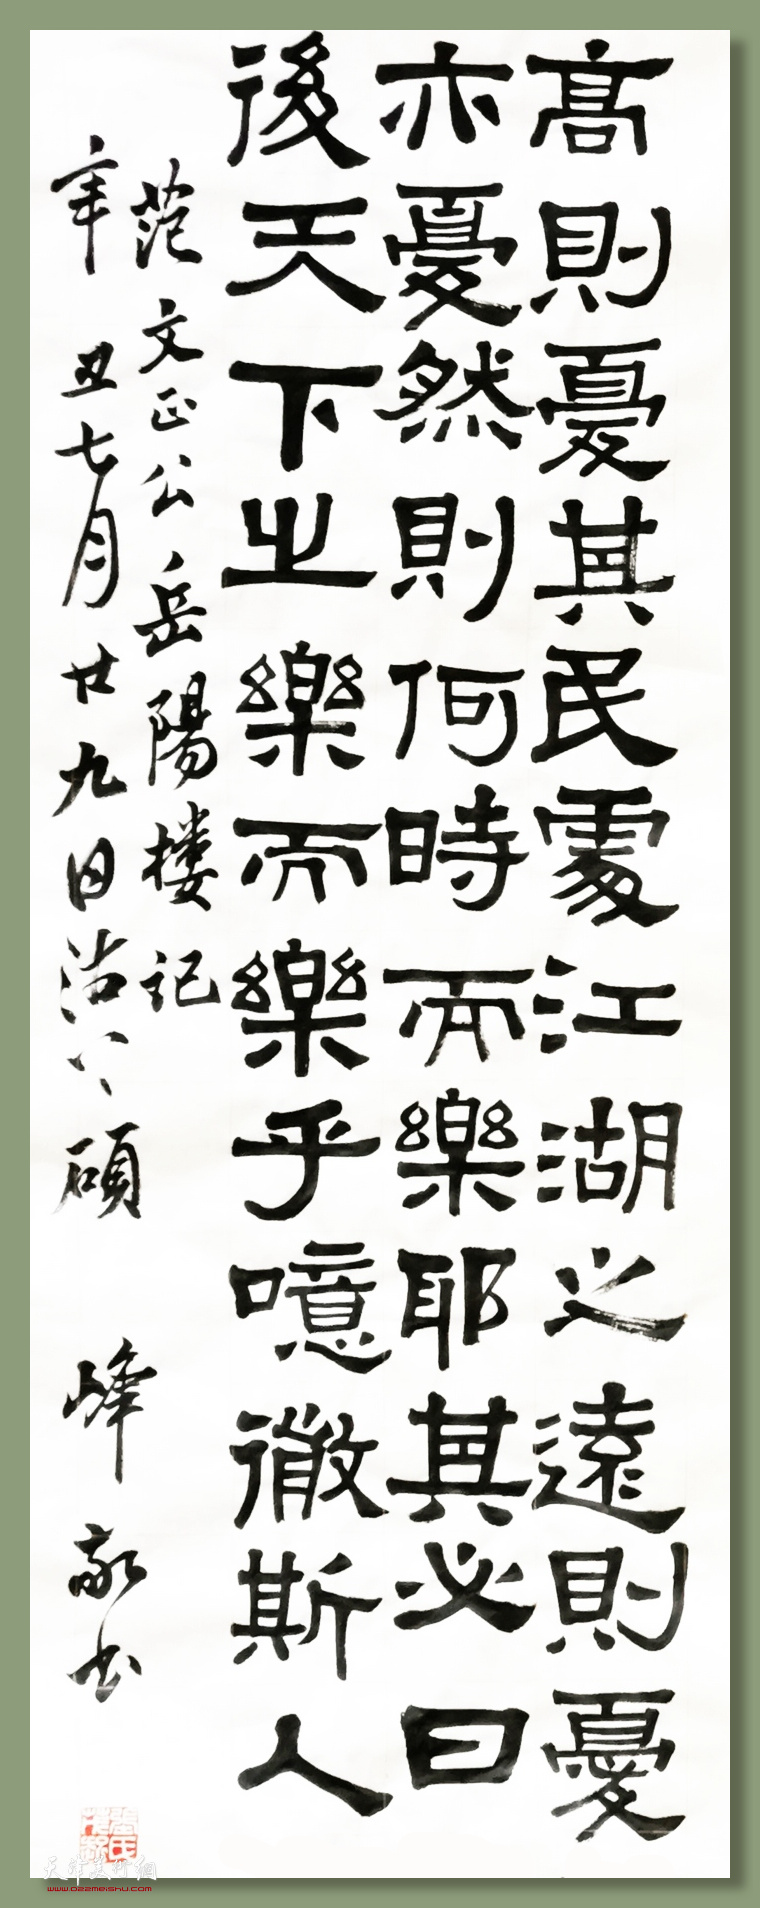 高則憂其民處江湖之遠則憂
亦憂然則何時而樂耶其必曰
後天下之樂而樂乎噫微斯人
范文正公岳陽楼记
辛丑七月廿九日沽上碩峰敬书
天津美术網
www.022meishu.com